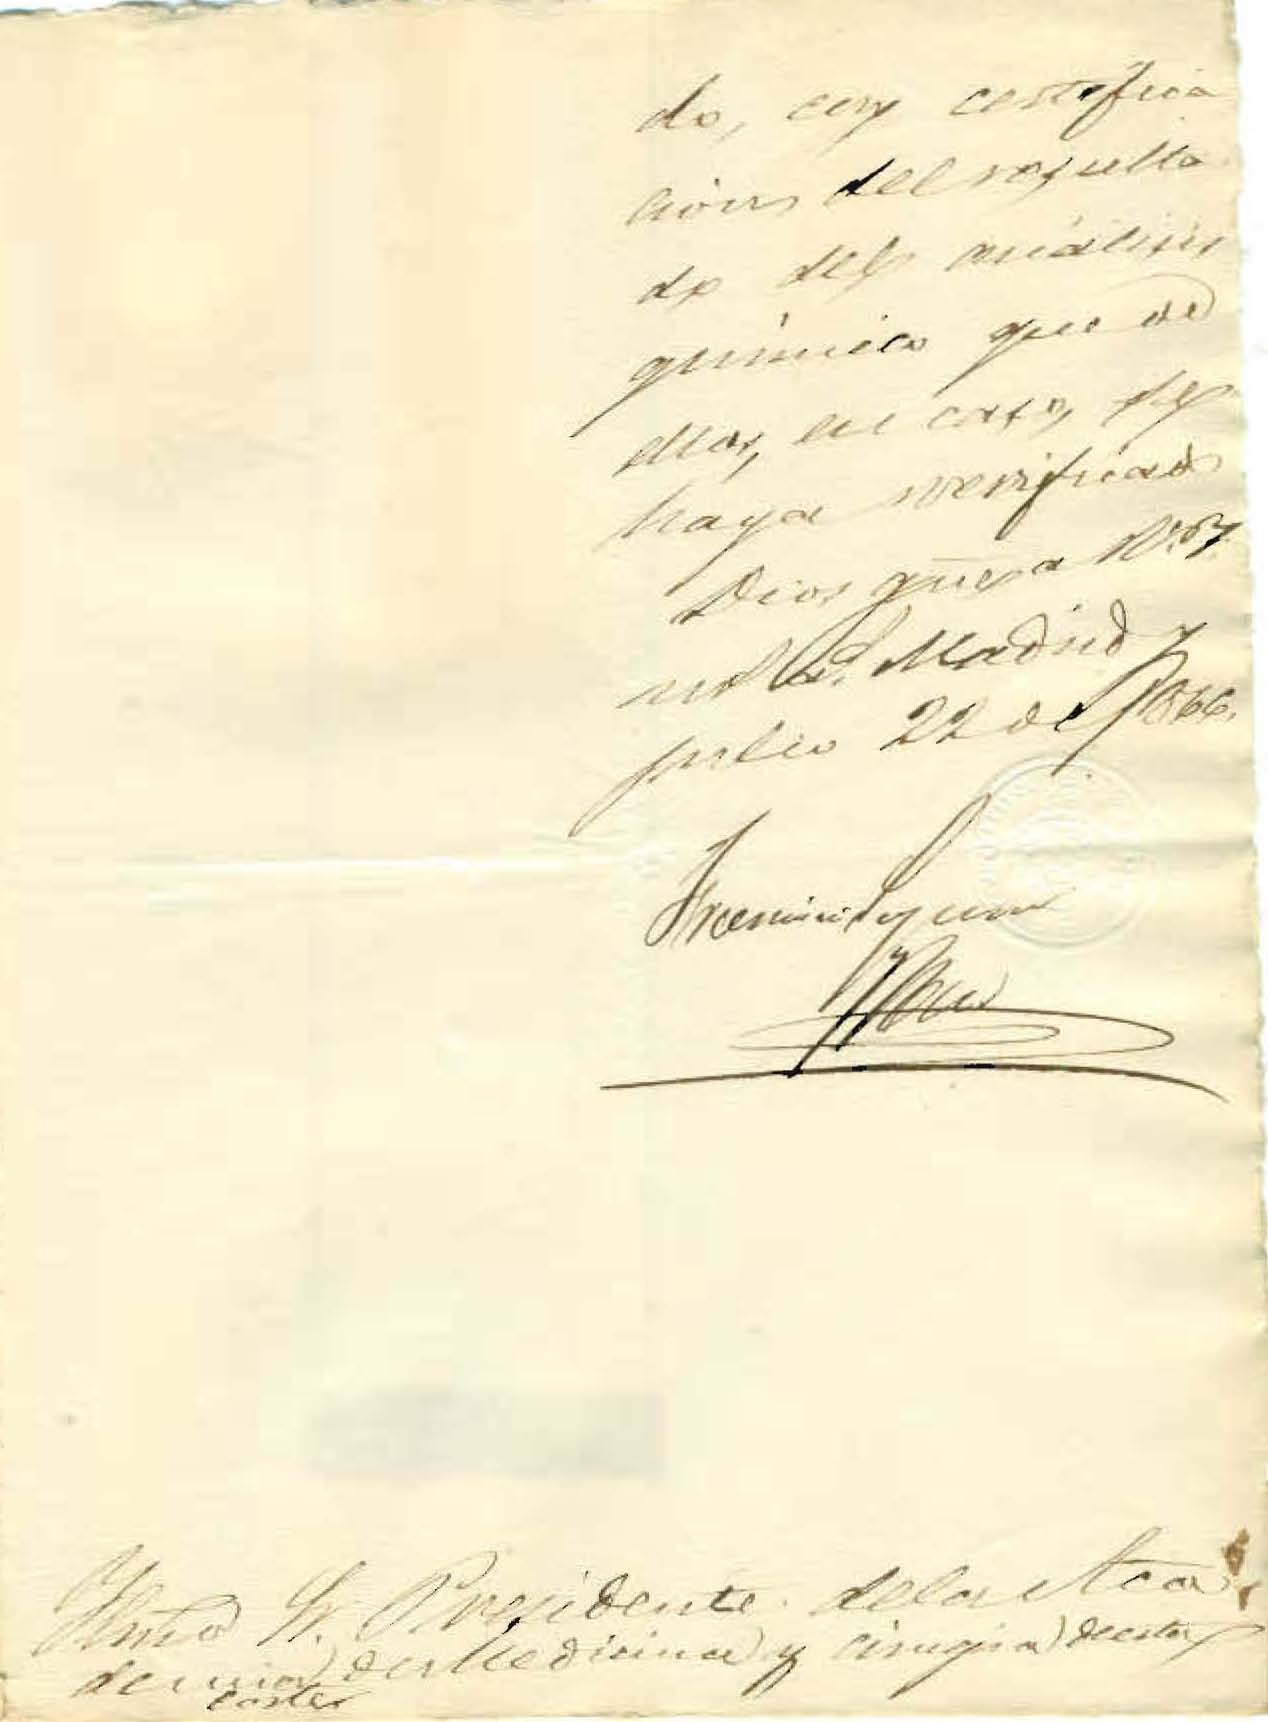 do, con certifica
cion del resulta
do del análisis
químico que de
ellas, en caso, se
haya verificado
Dios gũe a V.S.
Madrid y
julio 22 de 1866.
Ilmo Sr. Presidente de la Aca
demia de Medicina y cirugia de esta
corte